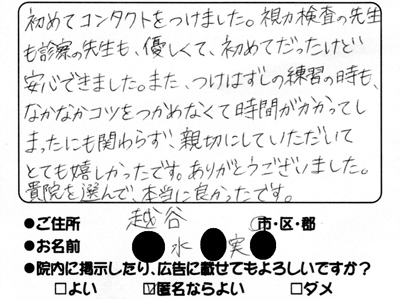 初めてコンタクトをつけました。視力検査の先生
も診察の先生も、優しくて、初めてだったけど
安心できました。また、つけはずしの練習の時も、
なかなかコツをつかめなくて時間がかかってし
まったにも関わらず、親切にしていただいて
とても嬉しかったです。ありがとうございました。
貴院を選んで、本当に良かったです。
●ご住所 越谷 市・区・郡
●お名前 水 実
●院内に掲示したり、広告に載せてもよろしいですか？
□よい ☑匿名ならよい □ダメ